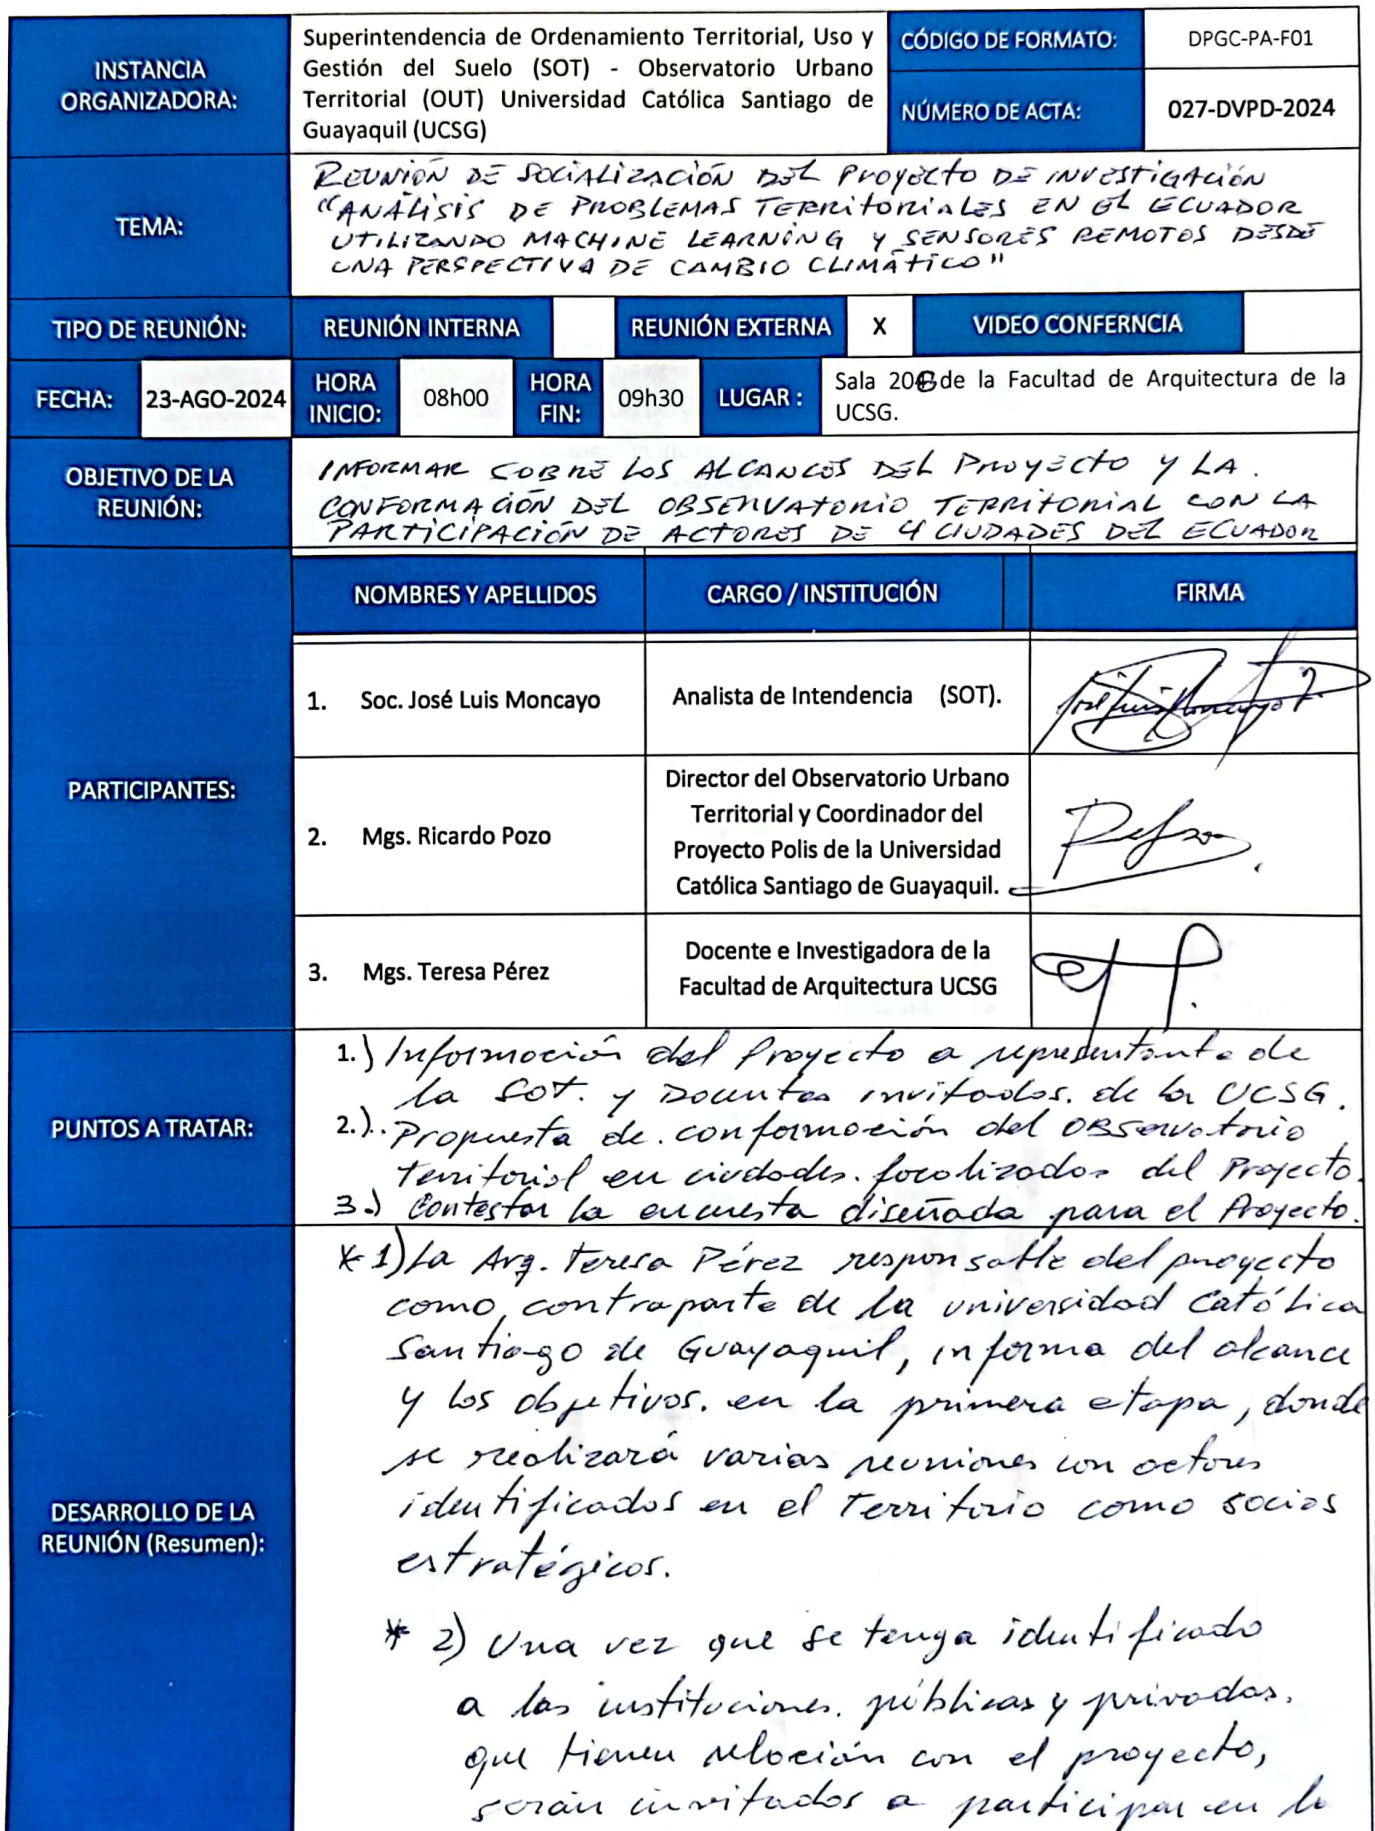 INSTANCIA
ORGANIZADORA:
Superintendencia de Ordenamiento Territorial, Uso y
Gestión del Suelo (SOT) - Observatorio Urbano
Territorial (OUT) Universidad Católica Santiago de
Guayaquil (UCSG)
CÓDIGO DE FORMATO:
DPGC-PA-F01
NÚMERO DE ACTA:
027-DVPD-2024
TEMA:
REUNIÓN DE SOCIALIZACIÓN DEL PROYECTO DE INVESTIGACIÓN
"ANÁLISIS DE PROBLEMAS TERRITORIALES EN EL ECUADOR
UTILIZANDO MACHINE LEARNING Y SENSORES REMOTOS DESDE
UNA PERSPECTIVA DE CAMBIO CLIMÁTICO"
TIPO DE REUNIÓN:
REUNIÓN INTERNA
REUNIÓN EXTERNA
X
VIDEO CONFERNCIA
FECHA:
23-AGO-2024
HORA
INICIO:
08h00
HORA
FIN:
09h30
LUGAR :
Sala de la Facultad de Arquitectura de la
UCSG.
OBJETIVO DE LA
REUNIÓN:
INFORMAR SOBRE LOS ALCANCES DEL PROYECTO Y LA.
CONFORMACIÓN DEL OBSERVATORIO TERRITORIAL CON LA
PARTICIPACIÓN DE ACTORES DE 4 CIUDADES DEL ECUADOR
PARTICIPANTES:
NOMBRES Y APELLIDOS
CARGO / INSTITUCIÓN
FIRMA
1. Soc. José Luis Moncayo
Analista de Intendencia (SOT).
2. Mgs. Ricardo Pozo
Director del Observatorio Urbano
Territorial y Coordinador del
Proyecto Polis de la Universidad
Católica Santiago de Guayaquil.
3. Mgs. Teresa Pérez
Docente e Investigadora de la
Facultad de Arquitectura UCSG
PUNTOS A TRATAR:
1.) Información del Proyecto a representante de
la SOT. y Docentes invitados. de la UCSG.
2.). Propuesta de. conformación del Observatorio
Territorial en ciudades. focalizadas del Proyecto.
3.) Contestar la encuesta diseñada para el Proyecto.
DESARROLLO DE LA
REUNIÓN (Resumen):
* 1) La Arq. Teresa Pérez responsable del proyecto
como contraparte de la universidad Católica
Santiago de Guayaquil, informa del alcance
y los objetivos. en la primera etapa, donde
se realizará varias reuniones con actores
identificados en el Territorio como socios
estratégicos.
* 2) Una vez que se tenga identificado
a las instituciones. públicas y privadas.
que tienen relación con el proyecto,
serán invitados a participar en la